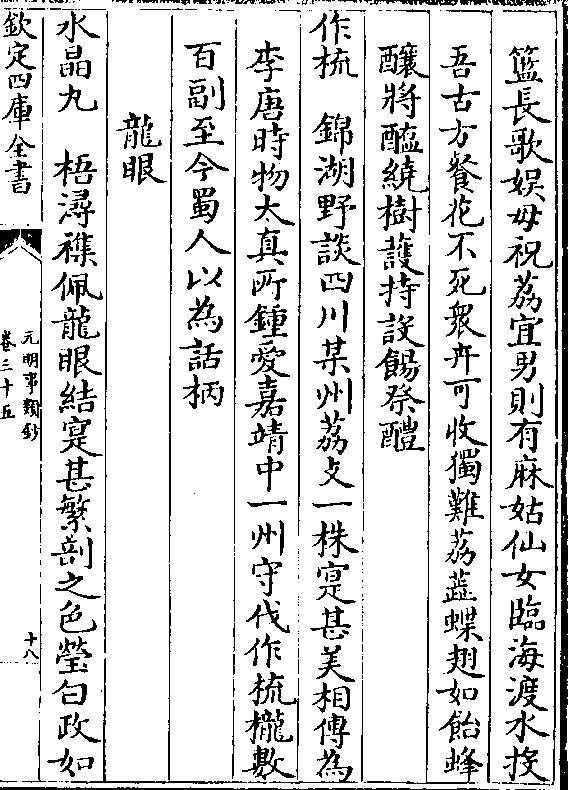 籃長歌娯母祝荔宜男則有麻姑仙女臨海渡水挼
吾古方餐花不死衆卉可收獨難荔蕋蝶翅如飴蜂
釀將醢繞樹護持設餳祭醴
作梳　錦湖野談四川某州荔攴一株寔甚美相傳為
李唐時物太真所鍾愛嘉靖中一州守伐作梳櫳數
百副至今蜀人以為話柄
龍眼
水晶丸　梧潯襍佩龍眼結寔甚繁剖之色瑩白政如
欽定四庫全書
元明事類鈔
卷三十五
十八